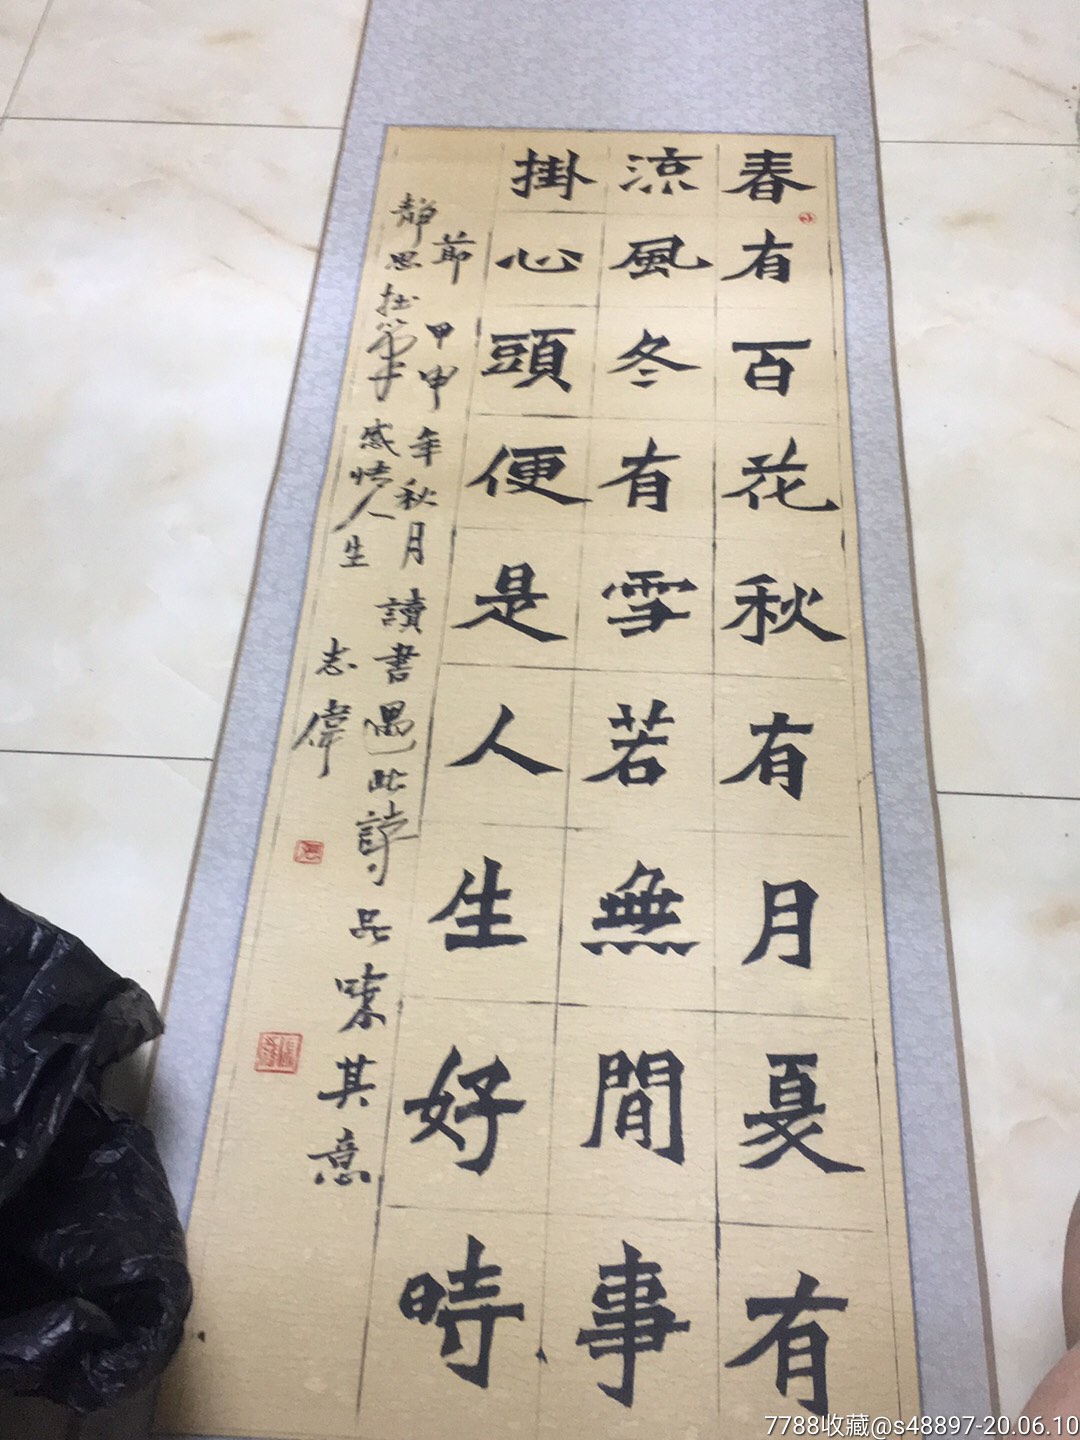 春有百花秋有月夏有
涼風冬有雪若無閒事
掛心頭便是人生好時
節 甲申年秋月 讀書遇此詩品味其意
靜思拙筆感悟人生 志偉
7788收藏@s48897-20.06.10